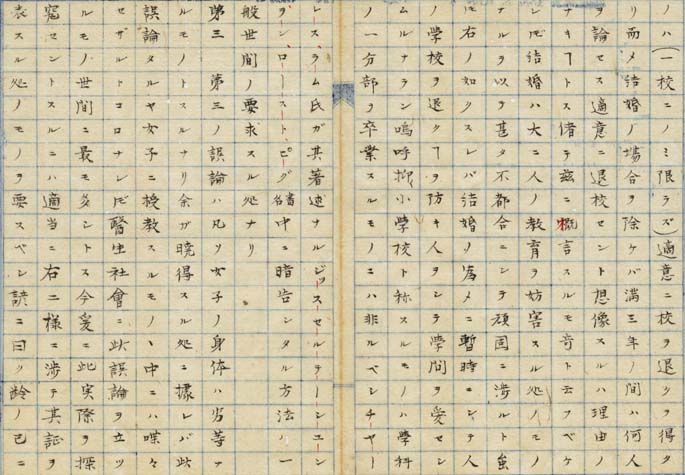 ノハ(一校ニノミ限ラズ)適意ニ校ヲ退クヲ得タ
リ而〆結婚ノ場合ヲ除ケバ満三年ノ間ハ何人
ヲ論セス適意ニ退校セント想像スルハ理由ノ
ナキヿトス偖テ茲ニ概言スルモ奇ト云フベケ
ン𪜈結婚ハ大ニ人ノ教育ヲ妨害スル処ノモノ
ナルヲ以テ甚タ不都合ニシテ頑固ニ渉ルト虽
𪜈右ノ如クスレバ結婚ノ為メニ暫時ニシテ人
ノ学校ヲ退クヿヲ防キ人ヲシテ学問ヲ愛セシ
ムルナラン嗚呼抑小学校ト称スルモノハ学科
ノ一分部ヲ卒業スルモノニハ非ルベシチヤー
レスラム氏ガ其著述ナルジッスセルテーシユン
ヲン、ロースト、ピグ書名中ニ暗告シタル方法ハ一
般世間ノ要求スル処ナリ
第三 第三ノ誤論ハ凡ソ女子ノ身体ハ劣等ナ
ルモノトスルナリ余ガ暁得スル処ニ據レバ此
誤論タルヤ女子ニ授教スルモノヽ中ニハ喋々
セザルトコロナレ𪜈醫生社會ニ此誤論ヲ立ツ
ルモノ世間ニ最モ多シトス今爰ニ此実際ヲ探
窺セントスルニハ適当ニ右二様ニ渉テ其証ヲ
表スル処ノモノヲ要スベシ諺ニ曰ク齢ノ已ニ